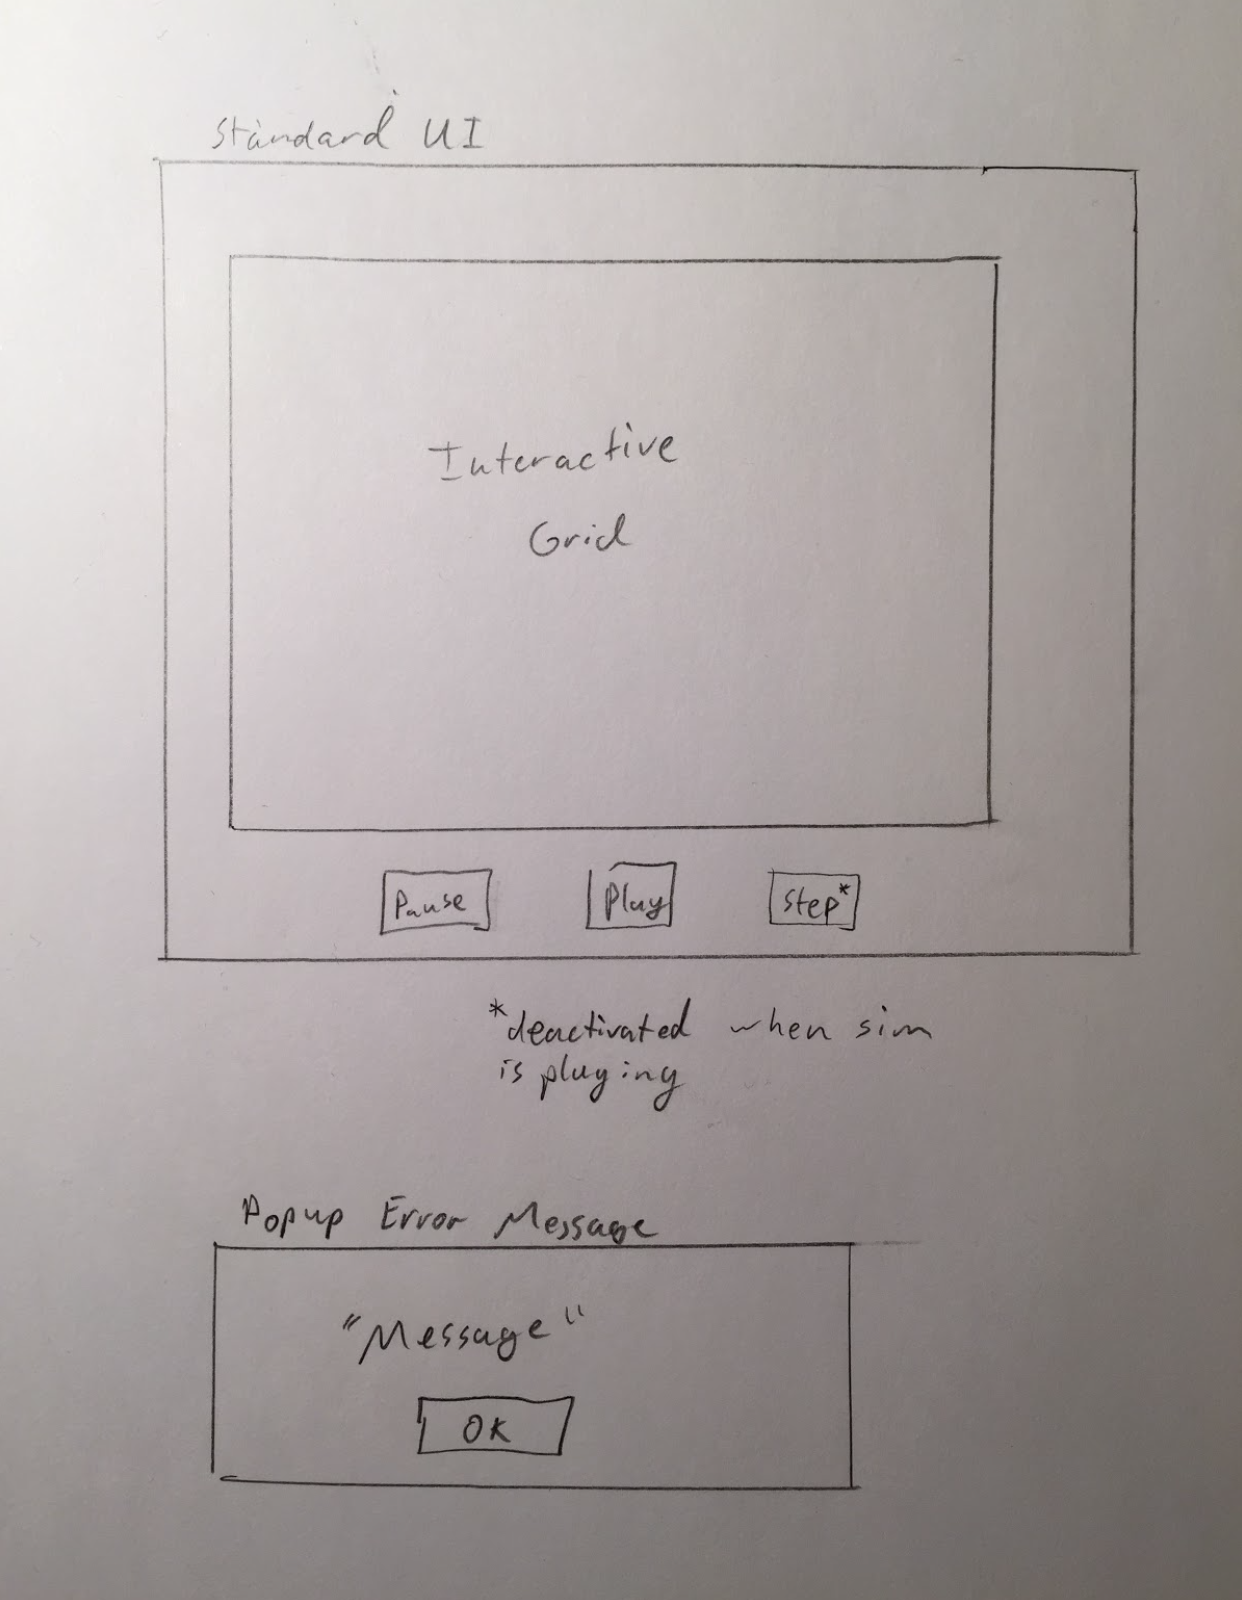 Standard UI
Interactive
Grid
Pause Play Step*
*deactivated when sim
is playing
Popup Error Message
"Message"
OK